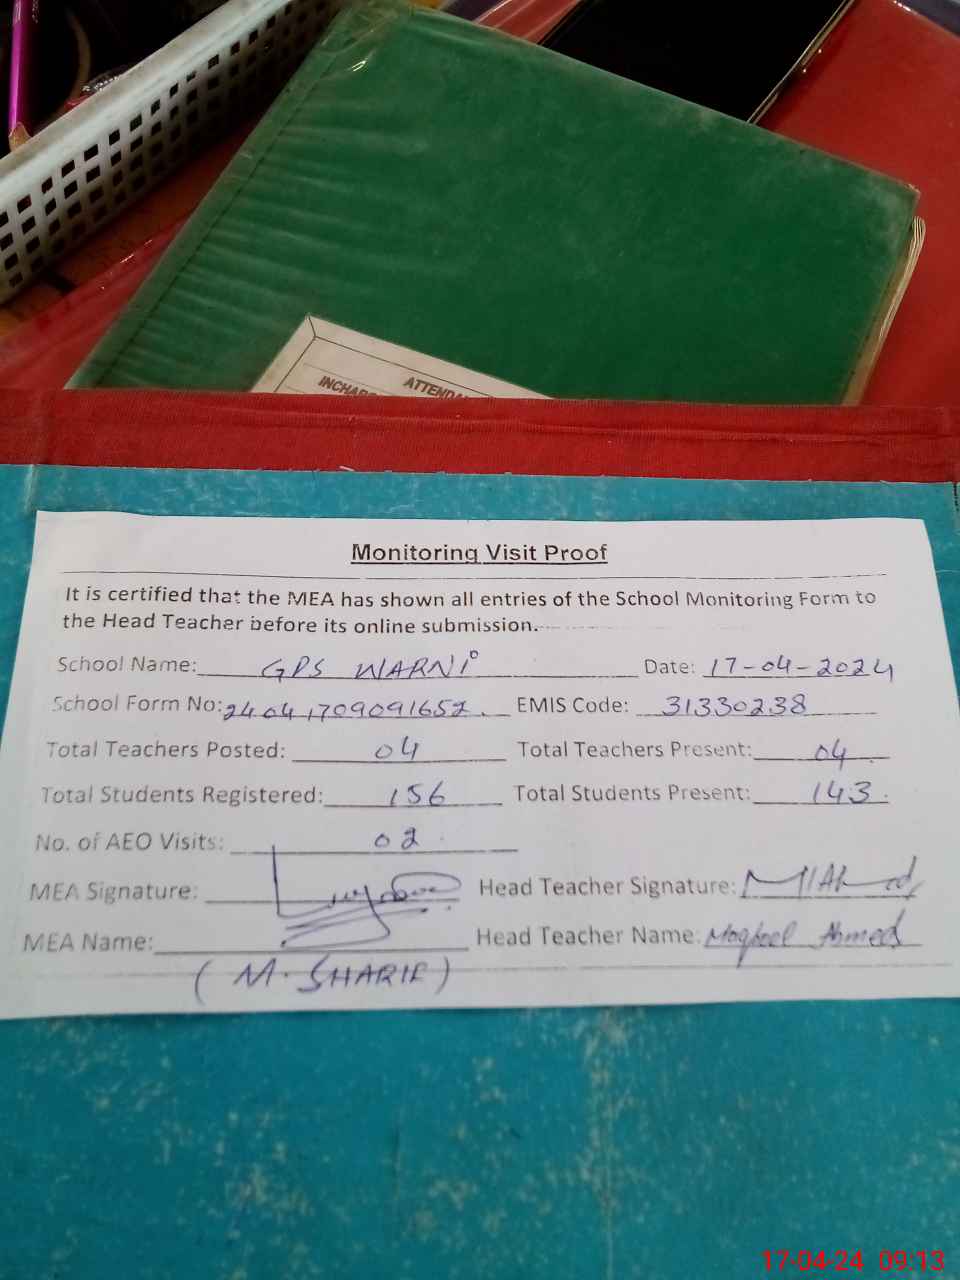 ATTENDA
INCHARG
Monitoring Visit Proof
It is certified that the MEA has shown all entries of the School Monitoring Form to
the Head Teacher before its online submission.
School Name: GPS WARNI Date: 17-04-2024
School Form No: 24041709091652. EMIS Code: 31330238
Total Teachers Posted: 04 Total Teachers Present: 04
Total Students Registered: 156 Total Students Present: 143.
No. of AEO Visits: 02
MEA Signature: Head Teacher Signature:
MEA Name: Head Teacher Name: Maqbool Ahmed
(M. SHARIF)
17-04-24 09:13